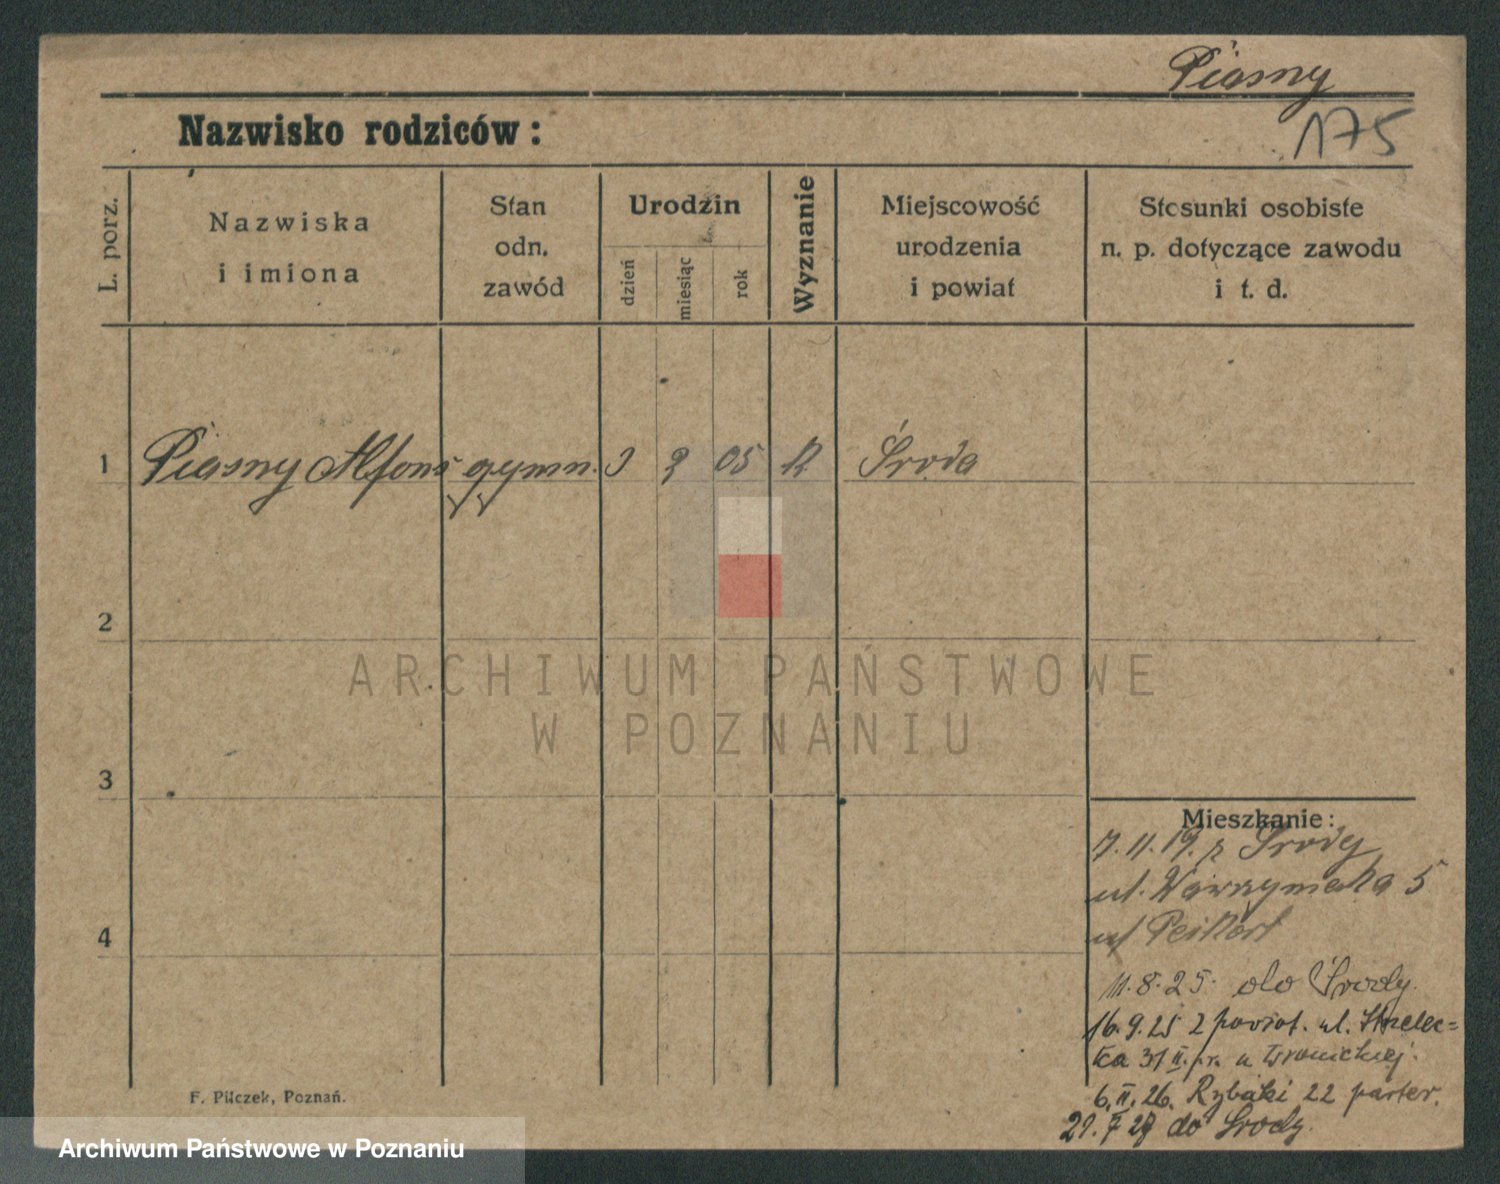 Piasny
175
Nazwisko rodziców:
L. porz.
Nazwiska
i imiona
Stan
odn.
zawód
Urodzin
dzień
miesiąc
rok
Wyznanie
Miejscowość
urodzenia
i powiat
Stosunki osobiste
n. p. dotyczące zawodu
i t. d.
1 Piasny Alfons gymn. 05 K Środa
2
ARCHIWUM PAŃSTWOWE
W POZNANIU
3
4
Mieszkanie:
7.11.19. z Środy
ul. 5
Peikert
11.8.25. do Środy.
16.9.25 z powrot. ul. Strzelec=
ka 31 II. pr. u
6.II.26. Rybaki 22 parter.
do Środy.
F. Pilczek, Poznań.
Archiwum Państwowe w Poznaniu